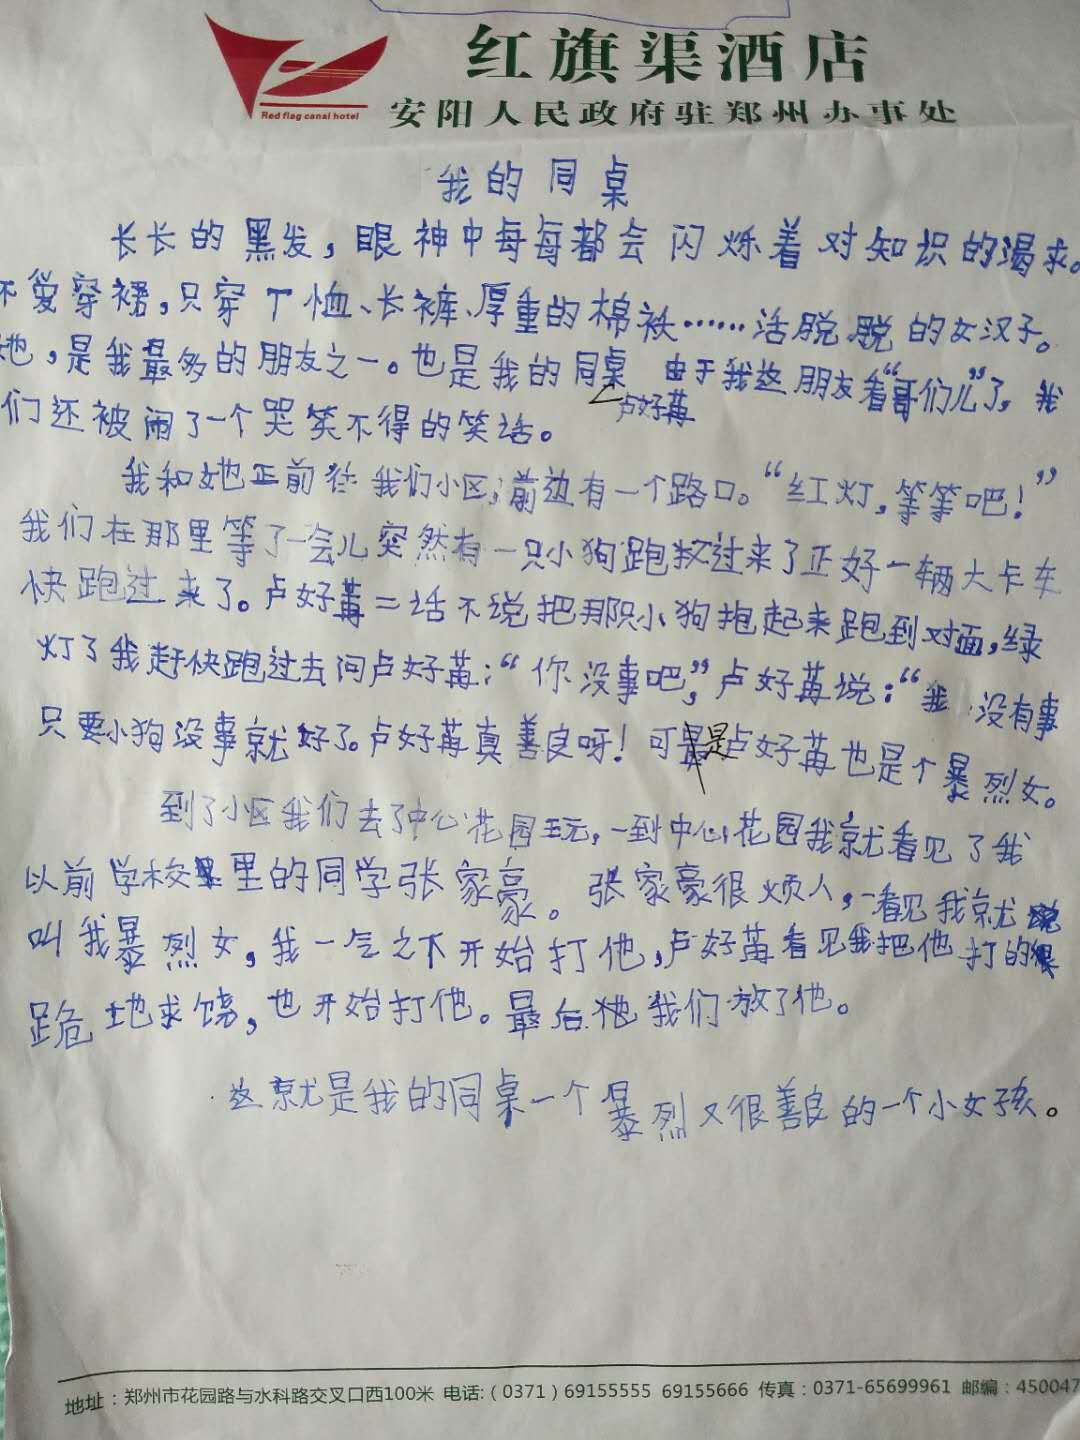 红旗渠酒店
Red flag canal hotel
安阳人民政府驻郑州办事处
我的同桌
长长的黑发，眼神中每每都会闪烁着对知识的渴求。
不爱穿裙，只穿T恤、长裤、厚重的棉袄……活脱脱的女汉子。
她，是我最多的朋友之一。也是我的同桌 由于我这朋友看“哥们儿”了，我
卢好苒
们还被闹了一个哭笑不得的笑话。
我和她正前往我们小区，前边有一个路口。“红灯，等等吧！”
我们在那里等了一会儿突然有一只小狗跑过来了正好一辆大卡车
快跑过来了。卢好苒二话不说把那只小狗抱起来跑到对面，绿
灯了我赶快跑过去问卢好苒：“你没事吧，”卢好苒说：“我没有事
只要小狗没事就好了。卢好苒真善良呀！可是卢好苒也是个暴烈女。
到了小区我们去了中心花园玩，一到中心花园我就看见了我
以前学校里的同学张家豪。张家豪很烦人，一看见我就
叫我暴烈女，我一气之下开始打他，卢好苒看见我把他打的
跪地求饶，也开始打他。最后我们放了他。
这就是我的同桌一个暴烈又很善良的一个小女孩。
地址：郑州市花园路与水科路交叉口西100米 电话：（0371）69155555 69155666 传真：0371-65699961 邮编：450047